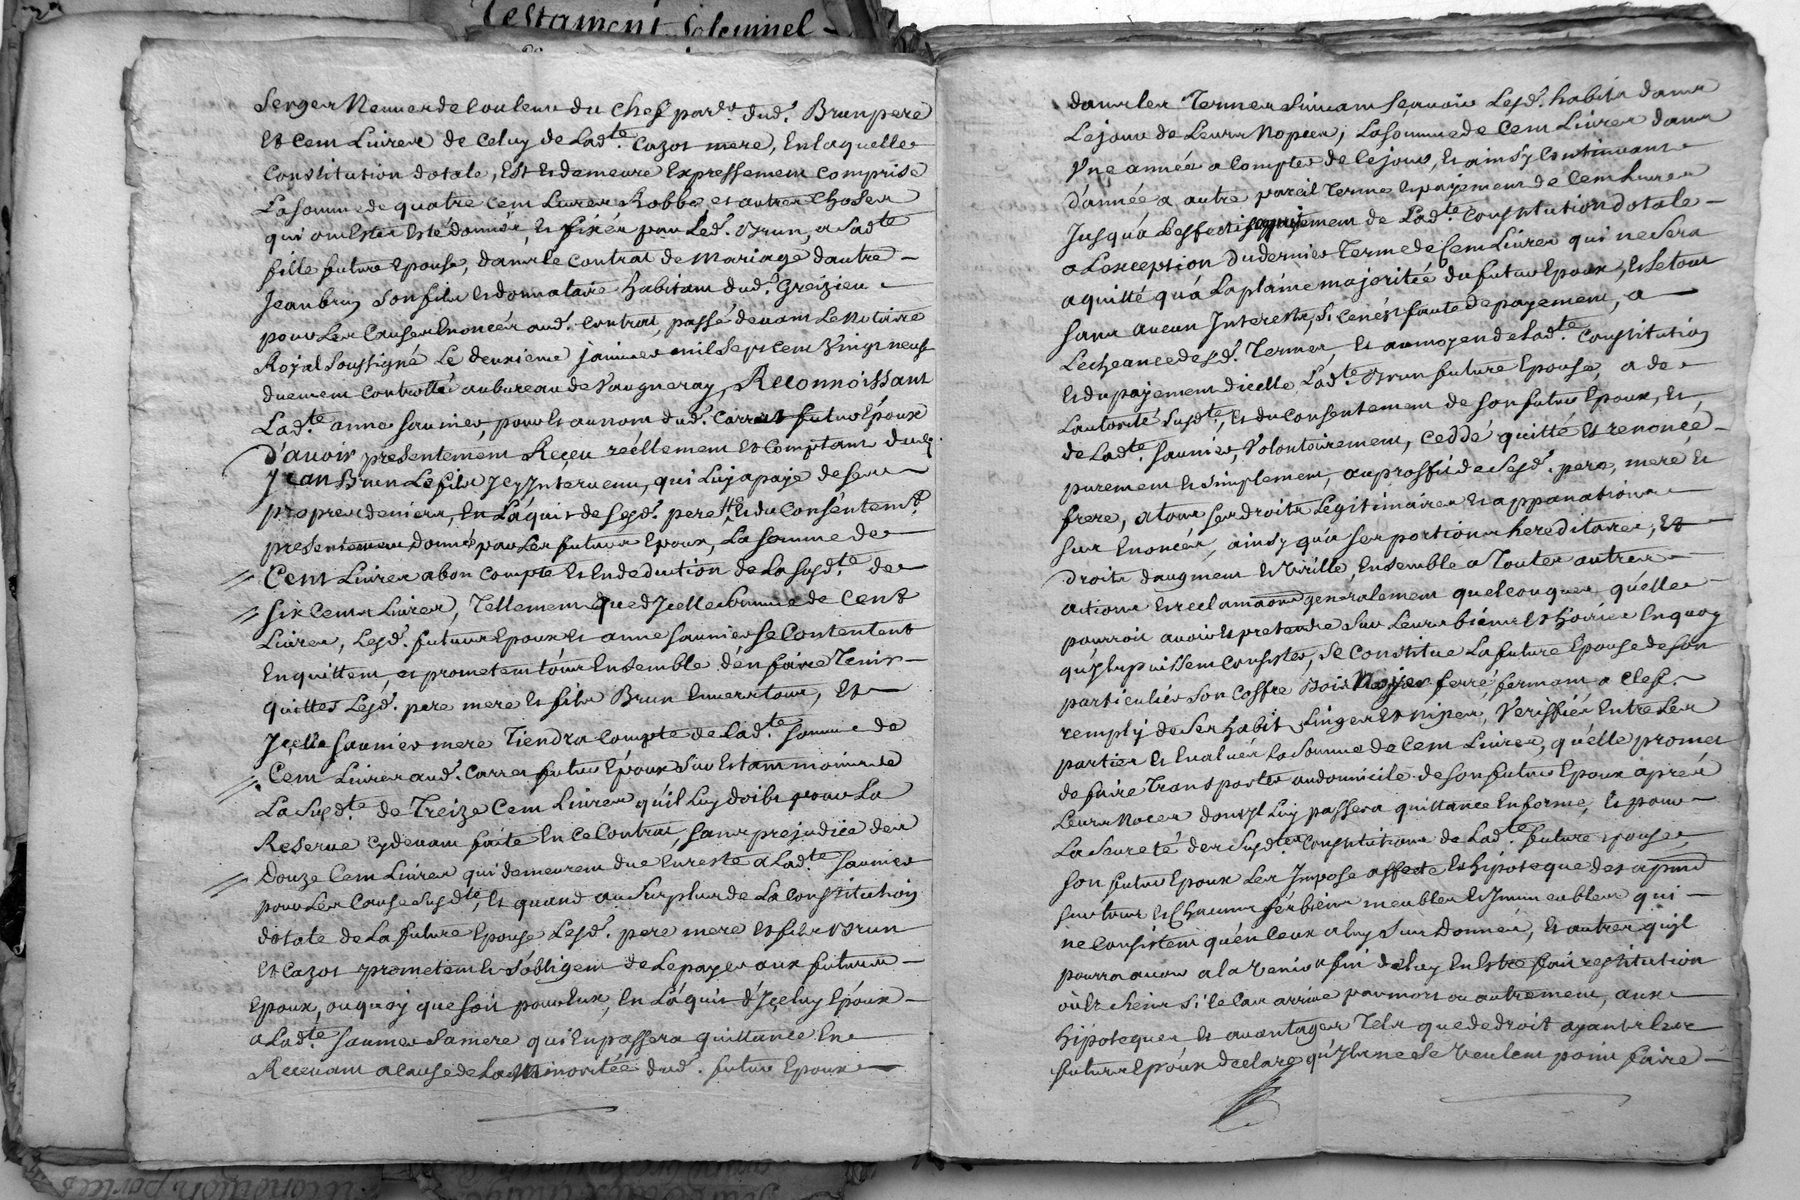 Testament Solemnel
Serges Neuves de Couleur du chef par.re dud. Brun pere
Et Cent Livres de Celuy de Lad.te Cazot mere, En laquelle
Constitution dotale, Est Et demeure Expressement comprise
La somme de quatre cent Livres Robbe et autres choses
qui ont Esté donnés, Et fixés par Led. Brun, a Sadte
fille future Epouse, dans le contrat de Mariage dautre
Jean brun Son fils Et donnataire habitant dud. Greizieu
pour Les Causes Enoncés aud. Contrat, passé devant Le Notaire
Royal Soussigné Le deuxieme janvier mil Sept cent Vingt neuf
duement Controllé au bureau de Vaugneray, Reconnoissant
Lad.te anne saunier, pour Et au nom dud. Carret futur Epoux
D'avoir presentement Reçeu réellement Et comptant dud.
Jean Brun Le fils Jcy Jntervenu, qui Luy a payé de ses
propres deniers, En L'áquit de Sesd. pere Et du Consentemt.
presentement donné par Les futurs Epoux, La somme de
Cent Livres a bon compte Et En deduction de La Susd.te de
Six Cents Livres, Tellement que d'Jcelle Somme de Cent
Livres, Lesd. futurs Epoux Et anne saunier Se Contentent
En quittent, et prometent tous Ensemble d'en faire Tenir
quittes Lesd. pere mere Et fils Brun Envers tous, Et
Jçelle saunier mere Tiendra Compte de Lad.te Somme de
Cent Livres aud. Carret futur Epoux Sur Et tant moins de
La Susd.te de Treize Cent Livres qu'il Luy doibt pour La
Reserve cydevant faite En ce Contrat, sans prejudice des
Douze Cent Livres qui demeurent due En reste a Lad.te saunier
pour Les Cause Susd.te, Et quand au Surplus de La Constitution
dotale de La future Epouse Lesd. pere mere Et fils Brun
Et Cazot prometent Et S'obligent de Le payer aux futurs
Epoux, ou quoy que Soit pour Eux, En L'áquit d'Jçeluy Epoux
a Lad.te saunier Sa mere qui En passera quittance En
Recevant a Cause de La Minorité dud. futur Epoux
dans les Termes Suivant Sçavoir Lesd. habits dans
Le jour de Leurs Nopces, La Somme de Cent Livres dans
Vne année a Compter de Ce jour, Et ainsy Continuant
d'année a autre pareil Terme Et payement de Cent Livres
Jusquá L'effectif payement de Lad.te Constitution dotale
a L'exception du dernier Terme de Cent Livres qui ne Sera
aquitté quá La plaine majorité du futur Epoux, Et Le tout
sans aucun Interests, Si ce n'est faute de payement, a
L'echeance desd. Termes, Et au moyen de Lad.te Constitution
Et du payement d'icelle Lad.te Brun future Epouse, a de
L'autorité Susd.te, Et du Consentement de Son futur Epoux, Et
de Lad.te saunier, Volontairement, Ceddé quitté Et renoncé
purement Et Simplement, au proffit de Sesd. pere, mere Et
frere, a tous Ses droits Legitimaires Et appanations
Sus Enoncés, ainsy quá Ses portions hereditaires, Et
Droits d'augment Et Virille, Ensemble a Toutes autres
actions Et reclamaons generalement quelconques qu'elle
pourroit avoir Et pretendre Sur Leurs biens Et hoiries En quoy
qu'Jls puissent Consister, Se Constitue La future Epouse de Son
particulier Son Coffre Bois Noyer ferré, fermant a Clef
remply de Ses habits Linges Et nipes, Veriffiés Entre Les
parties Et Evalués La Somme de Cent Livres, qu'elle promet
de faire Transporter au domicile de Son futur Epoux aprés
Leurs Noces dont Jl Luy passera quittance En forme, Et pour
La Seureté des Susd.tes Constitutions de Lad.te future Epouse
Son futur Epoux Les Jmpose affecte Et hipoteque des a pnt
Sur tous Et Chacuns Ses biens meubles Et Jmmeubles qui
ne Consistent qu'en Ceux a luy Sus Donnés, Et autres qu'il
pourra avoir a la Venir affin d'eluy En Estre fait restitution
oú Et Seins Si le Cas arrive par mort ou autrement, aux
hipoteques Et avantages Tels que de droit ayants Les
futurs Epoux declaré qu'Jls ne Se Veulent point faire